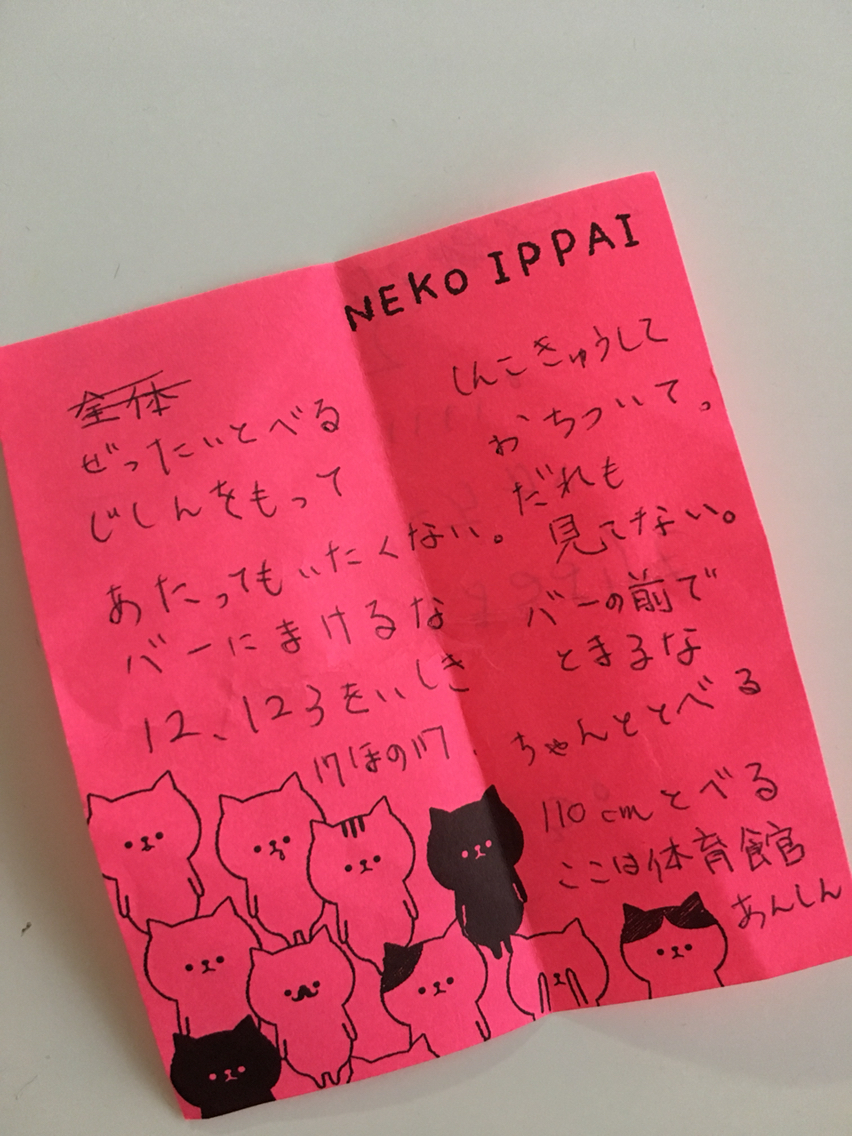 NEKO IPPAI
全体
ぜったいとべる
じしんをもって
あたってもいたくない。
バーにまけるな
12、123をいしき
17ほの17.
しんこきゅうして
おちついて。
だれも
見てない。
バーの前で
とまるな
ちゃんととべる
110cmとべる
ここは体育館
あんしん